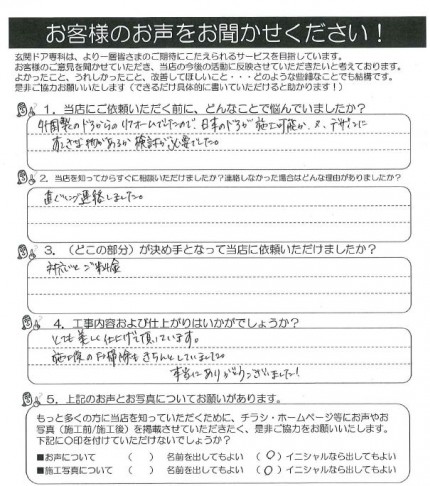 お客様のお声をお聞かせください！
玄関ドア専科は、より一層皆さまのご期待にこたえられるサービスを目指しています。
お客様のご意見を聞かせていただき、当店の今後の活動に反映させていただきたいと考えております。
よかったこと、うれしかったこと、改善してほしいこと・・・どのような些細なことでも結構です。
是非ご協力お願いします（できるだけ具体的に書いていただけると助かります！）
1．当店にご依頼いただく前に、どんなことで悩んでいましたか？
外国製のドアからのリフォームでしたので、日本のドアが施工可能か、又、デザインに
物があるか検討が必要でした。
2．当店を知ってからすぐに相談いただけましたか？連絡しなかった場合はどんな理由がありましたか？
直ぐに連絡しました。
3．（どこの部分）が決め手となって当店に依頼いただけましたか？
対応とご料金
4．工事内容および仕上がりはいかがでしょうか？
とても美しく仕上げて頂いています。
施工後のお掃除もきちんとしていました。
本当にありがとうございました！
5．上記のお声とお写真についてお願いがあります。
もっと多くの方に当店を知っていただくために、チラシ・ホームページ等にお声やお
写真（施工前/施工後）を掲載させていただきたく、是非ご協力をお願いいたします。
下記に〇印を付けていただけないでしょうか？
■お声について （ ） 名前を出してもよい （〇）イニシャルなら出してもよい
■施工写真について （ ） 名前を出してもよい （〇）イニシャルなら出してもよい